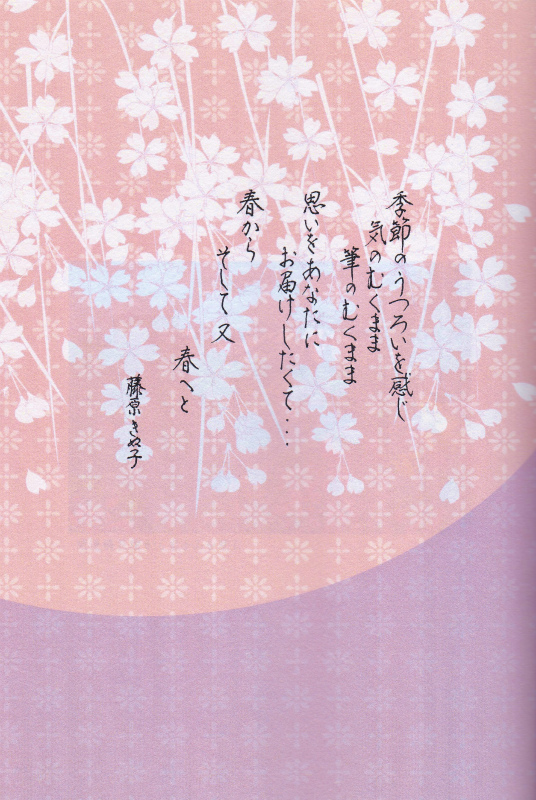 季節のうつろいを感じ
気のむくまま
筆のむくまま
思いをあなたに
お届けしたくて・・・
春から
そして又
春へと
藤原きぬ子